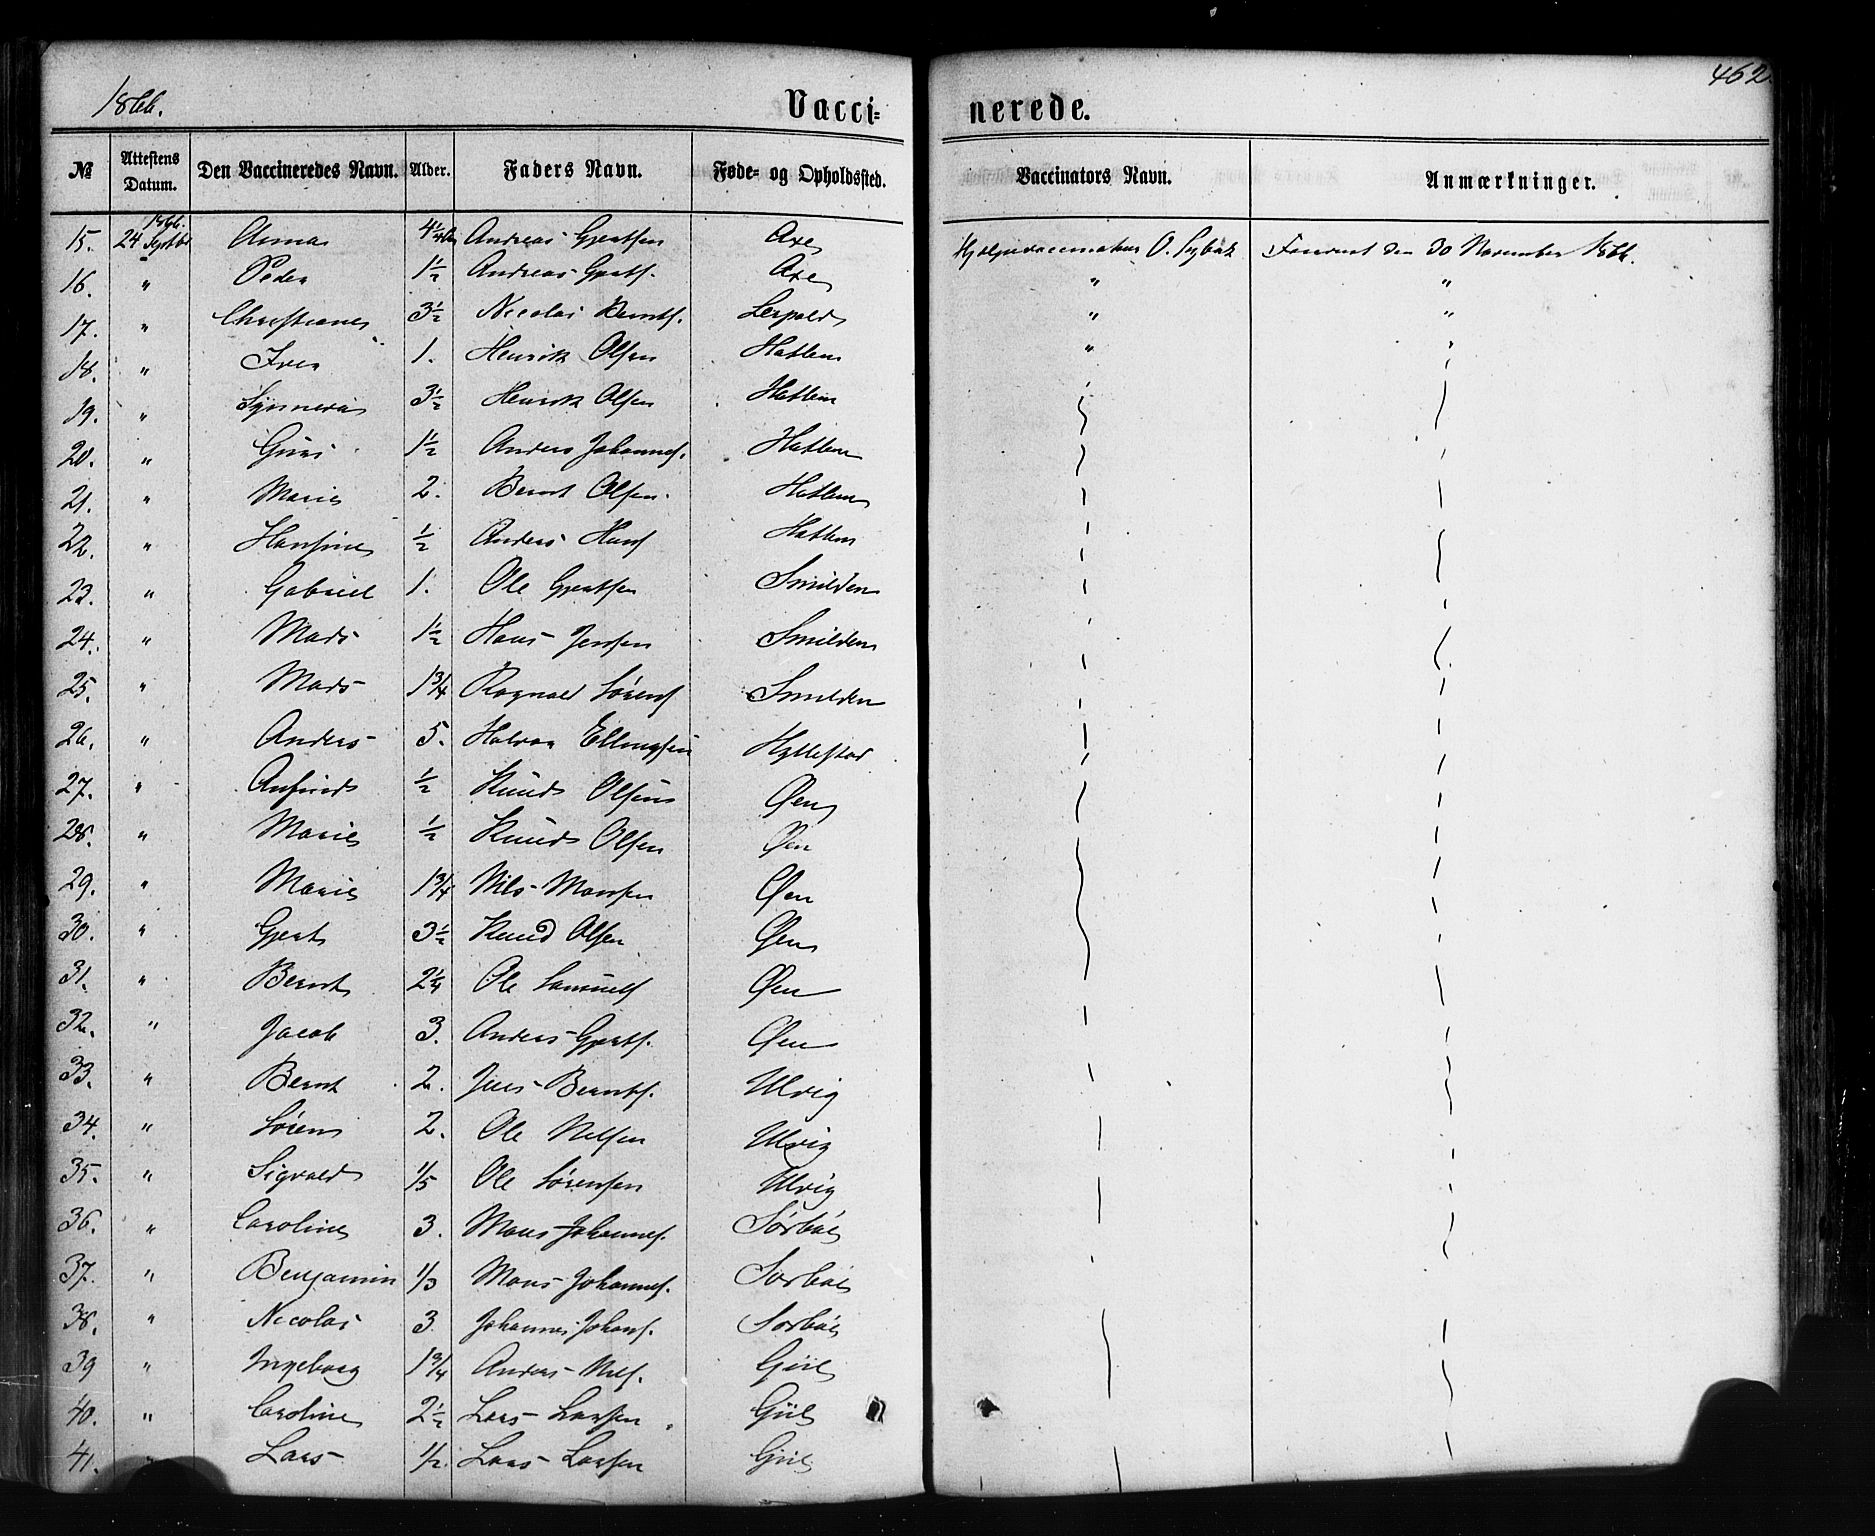 1866.
Vaccinerede.
462.
№ Attestens Datum. Den Vaccineredes Navn. Alder. Faders Navn. Føde- og Opholdssted. Vaccinators Navn. Anmærkninger.
15. 1866. 24 Septbr Anna 4 1/4 Andreas Gjertsen Axe Hjelpevaccinateur O. Anmærkninger den 30 November 1866.
16. " Peder 1 1/2 Andreas Gjerts. Axe " "
17. " Christiane 3 1/2 Nicolai Bernts. Leepold " "
18. " Iver 1. Henrik Olsen Hatlem "
19. " Synneva 3 1/2 Henrik Olsen Hatlem
20. " Guri 1 1/2 Anders Johannes. Hatlem
21. " Marie 2. Bernt Olsen Hatlem
22. " Hansine 1/2 Anders Hans Hatlem
23. " Gabriel 1. Ole Gjertsen Smilden
24. " Mads 1 1/2 Hans Jensen Smilden
25. " Mads 1 3/4 Ragnald Sörens Smilden
26. " Anders 5. Halvor Ellingsen Hyllestad
27. " Anfind 1/2 Knud Olsen Øen
28. " Marie 1/2 Knud Olsen Øen
29. " Marie 1 3/4 Nils Monsen Øen
30. " Gjert 3 1/2 Knud Olsen Øen
31. " Bernt 2 1/4 Ole Samuels Øen
32. " Jacob 3. Anders Gjerts. Øen
33. " Bernt 2. Jens Bernts. Ulvig
34. " Sören 2. Ole Nilsen Ulvig
35. " Sigvald 1/5 Ole Sörensen Ulvig
36. " Caroline 3. Mons Johannes. Sörböe
37. " Benjamin 1/3 Mons Johannes. Sörböe
38. " Nicolai 3 Johannes Johans. Sörböe
39 " Ingeborg 1 3/4 Anders Nils. Giil
40. " Caroline 2 1/2 Lars Larsen Giil
41. " Lars 1/2. Lars Larsen Giil